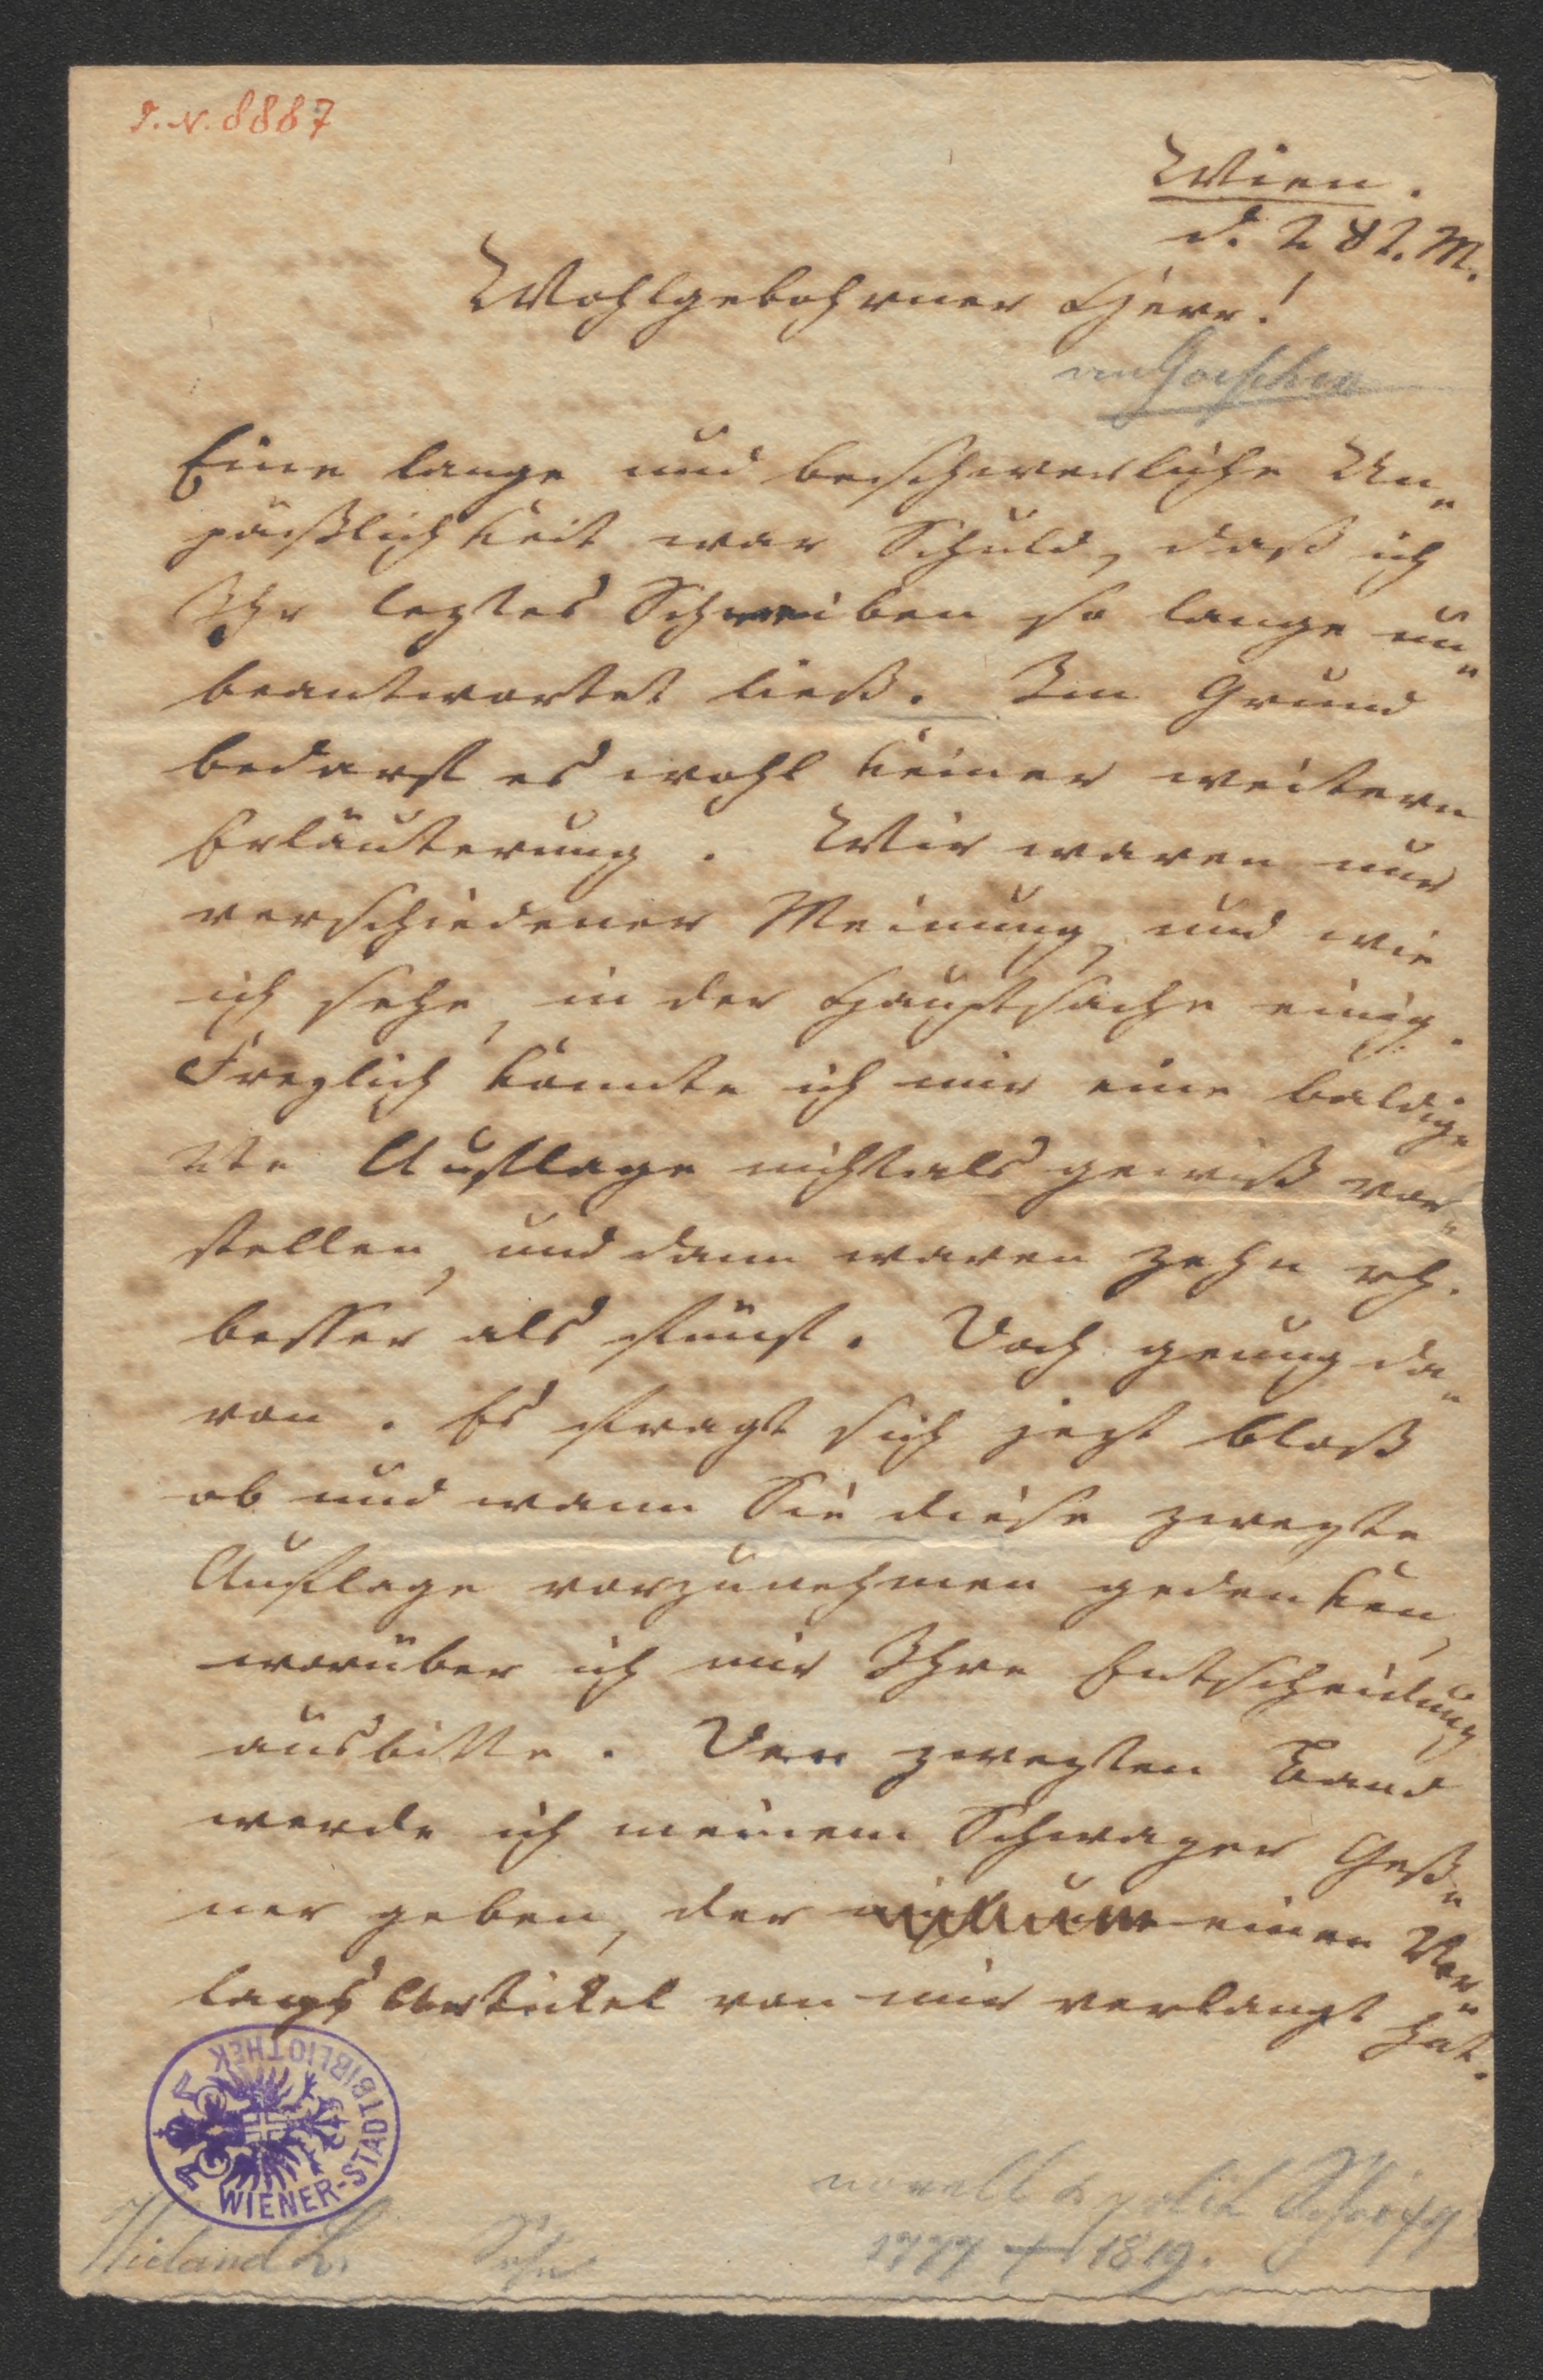 I. N. 8887
Wien.
d. 2 82. M.
Wohlgebohrner Herr!
an Goeschen
Eine lange und beschwerliche Un„
päßlichkeit war Schuld, daß ich
Ihr leztes Schreiben so lange un„
beantwortet ließ. Im Grund
bedarf es wohl keiner weitern
Erläuterung. Wir waren nur
verschiedener Meinung, und wie
ich sehe, in der Hauptsache einig.
Freylich konnte ich mir eine baldige
2te Auflage nicht als gewiß vor„
stellen, und dann waren zehn rh.
besser als fünf. Doch genung da„
von. Es fragt sich jezt bloß
ob und wann Sie diese zweyte
Auflage vorzunehmen gedenken,
worüber ich mir Ihre Entscheidung
ausbitte. Den zweyten Band
werde ich meinem Schwager Geß„
ner geben, der einen Ver„
lags Artickel von mir verlangt hat.
WIENER-STADTBIBLIOTHEK
Wieland L. Sohn
novell & polit Schriftst
1777 + 1819.